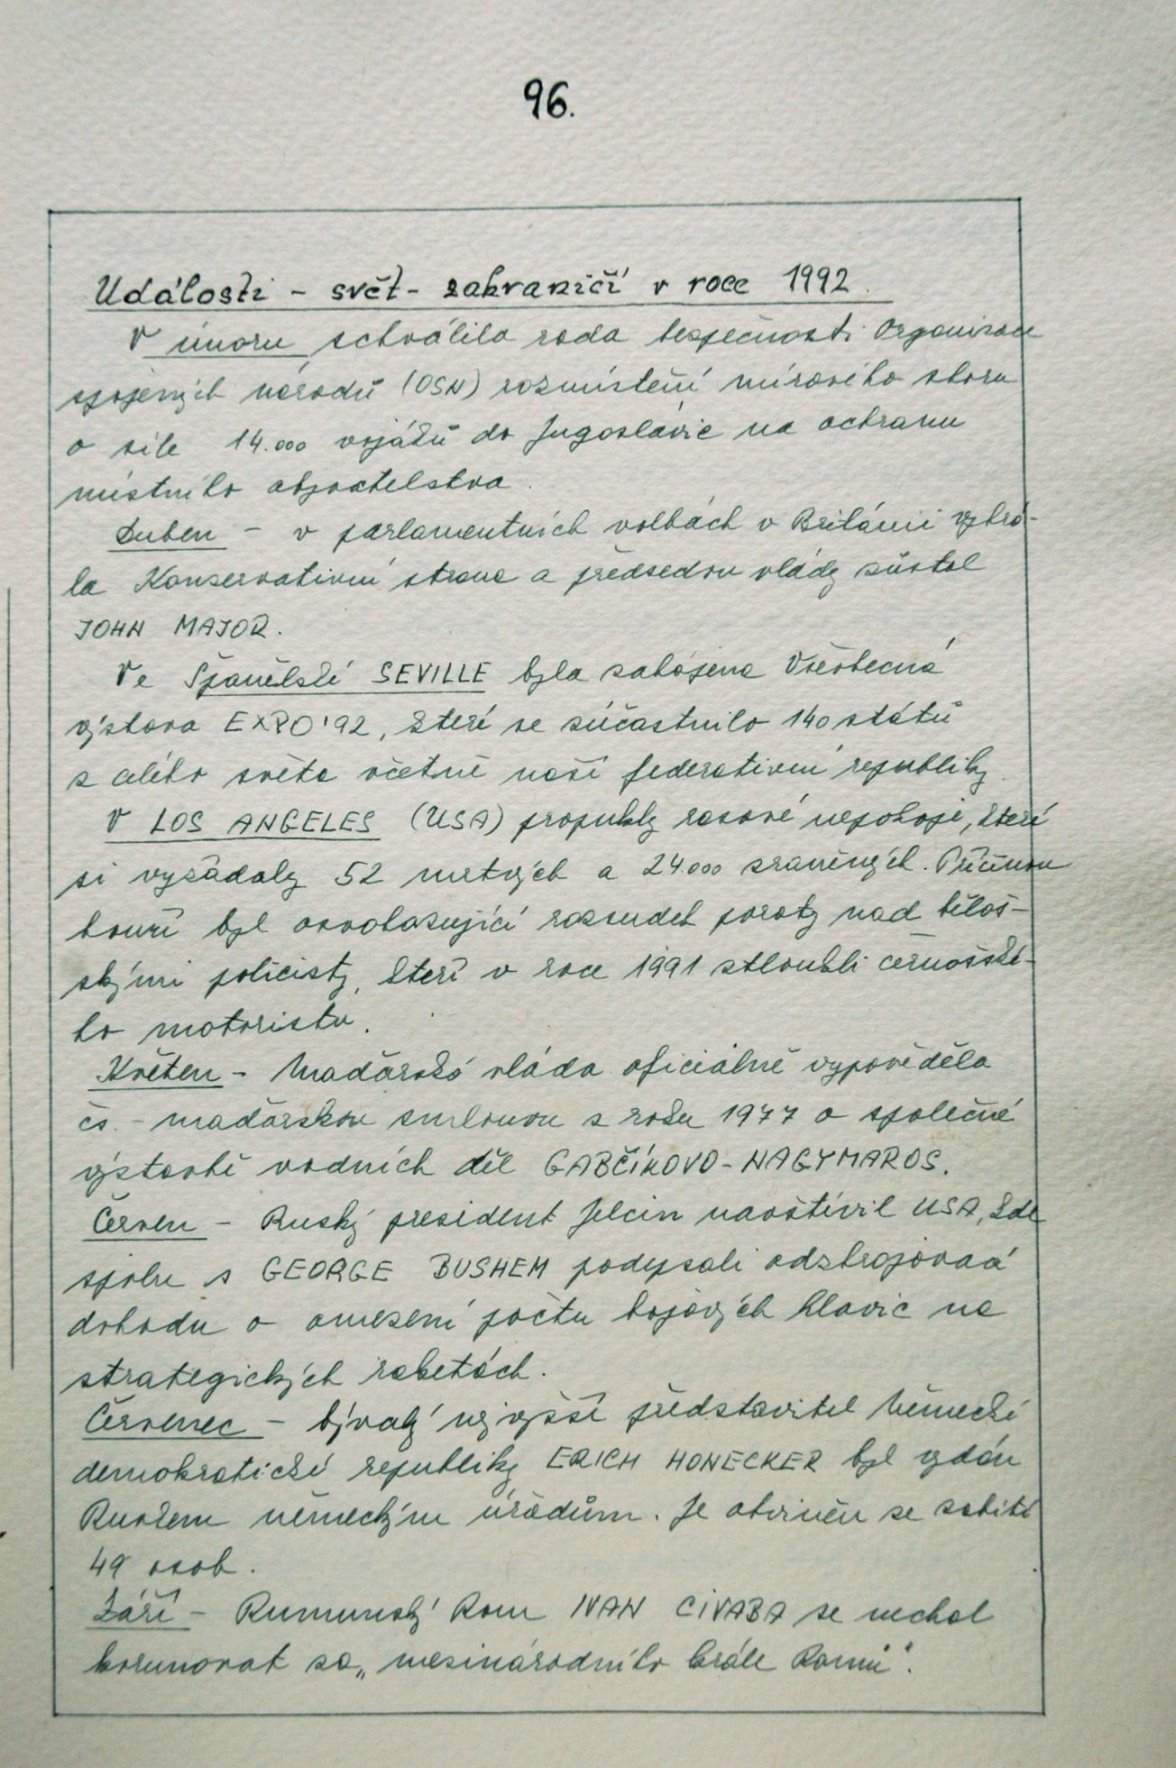 96.
Události - svět - zahraničí v roce 1992.
V únoru schválila rada bezpečnosti Organizace
spojených národů (OSN) rozmístění mírového sboru
o síle 14.000 vojáků do Jugoslávie na ochranu
místního obyvatelstva.
Duben - v parlamentních volbách v Británii vyhrá-
la Konservativní strana a předsedou vlády zůstal
JOHN MAJOR.
Ve Španělské SEVILLE byla zahájena Všeobecná
výstava EXPO'92, které se súčastnilo 140 států
z celého světa včetně naší federativní republiky.
V LOS ANGELES (USA) propukly rasové nepokoje, které
si vyžádaly 52 mrtvých a 24.000 zraněných. Příčinou
bouří byl osvobozující rozsudek poroty nad běloš-
skými policisty, kteří v roce 1991 ztloukli černošské-
ho motoristu.
Květen - Maďarská vláda oficiálně vypověděla
čs. - maďarskou smlouvu z roku 1977 o společné
výstavbě vodních děl GABČÍKOVO - NAGYMAROS.
Červen - Ruský president Jelcin navštívil USA, kde
spolu s GEORGE BUSHEM podepsali odzbrojovací
dohodu o omezení počtu bojových hlavic na
strategických raketách.
Červenec - bývalý nejvyšší představitel Německé
demokratické republiky ERICH HONECKER byl vydán
Ruskem německým úřadům. Je obviněn ze zabití
49 osob.
Září - Rumunský Rom IVAN CIVABA se nechal
korunovat za „mezinárodního krále Romů".